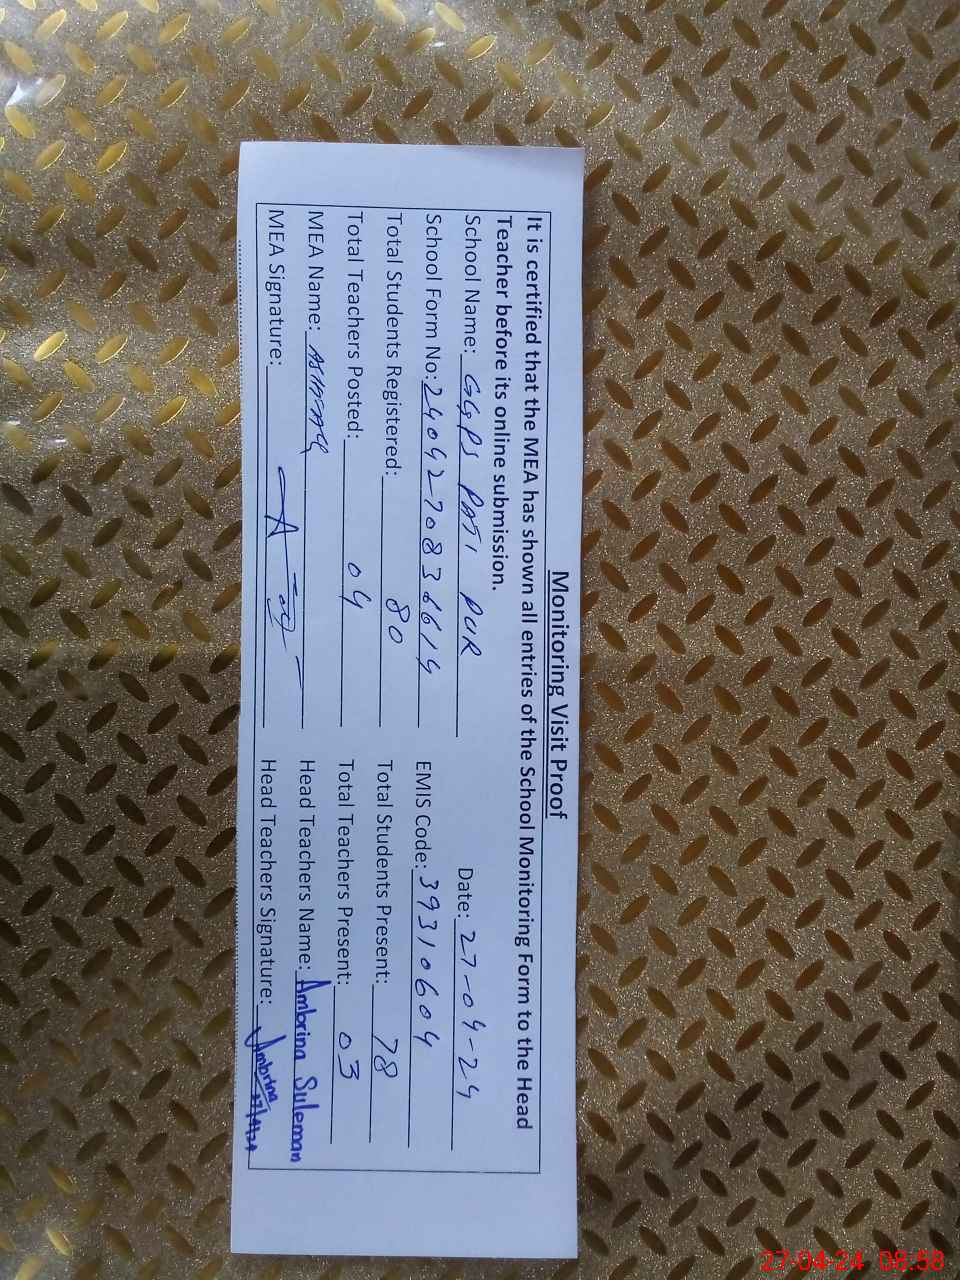 Monitoring Visit Proof
It is certified that the MEA has shown all entries of the School Monitoring Form to the Head
Teacher before its online submission.
Date: 27-04-24
School Name: GGPS PATI PUR
School Form No: 2404270836614 EMIS Code: 39310604
Total Students Registered: 80 Total Students Present: 78
Total Teachers Posted: 04 Total Teachers Present: 03
MEA Name: Head Teachers Name: Ambrina Suleman
MEA Signature: Head Teachers Signature: Ambrina
27/4/24
27-04-24 08:58